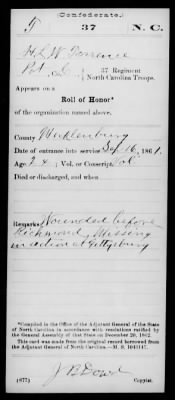 (Confederate.)
T 37 N. C.
H. L. W. Torrence
Pvt, Co. 37 Regiment
North Carolina Troops.
Appears on a
Roll of Honor*
of the organization named above.
County Mecklenburg
Date of entrance into service Sep 16, 1861.
Age 24; Vol. or Conscript Vol
Died or discharged, and when
Remarks: Wounded before
Richmond, Missing
in action at Gettysburg
*Compiled in the Office of the Adjutant General of the State
of North Carolina in accordance with resolutions ratified
by the General Assembly of that State on December 20, 1862.
This card was made from the original record borrowed from
the Adjutant General of North Carolina.—M. S.
J. B. Dowd
(877) Copyist.